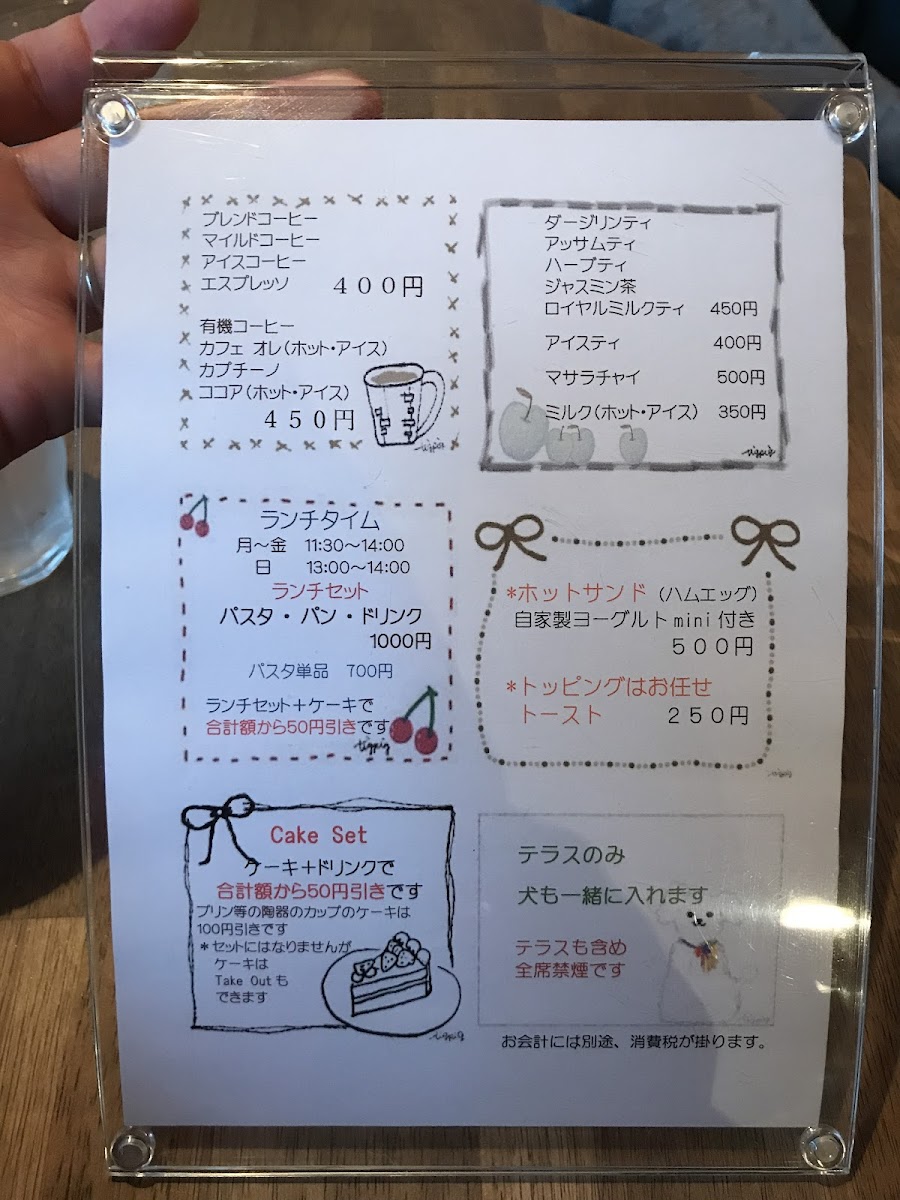 ブレンドコーヒー
マイルドコーヒー
アイスコーヒー
エスプレッソ ４００円
有機コーヒー
カフェ オレ(ホット・アイス)
カプチーノ
ココア(ホット・アイス)
４５０円
ダージリンティ
アッサムティ
ハーブティ
ジャスミン茶
ロイヤルミルクティ 450円
アイスティ 400円
マサラチャイ 500円
ミルク(ホット・アイス) 350円
ランチタイム
月～金 11:30～14:00
日 13:00～14:00
ランチセット
パスタ・パン・ドリンク
1000円
パスタ単品 700円
ランチセット＋ケーキで
合計額から50円引きです
*ホットサンド (ハムエッグ)
自家製ヨーグルトmini付き
５００円
*トッピングはお任せ
トースト ２５０円
Cake Set
ケーキ＋ドリンクで
合計額から50円引きです
プリン等の陶器のカップのケーキは
100円引きです
＊セットにはなりませんが
ケーキは
Take Outも
できます
テラスのみ
犬も一緒に入れます
テラスも含め
全席禁煙です
お会計には別途、消費税が掛ります。